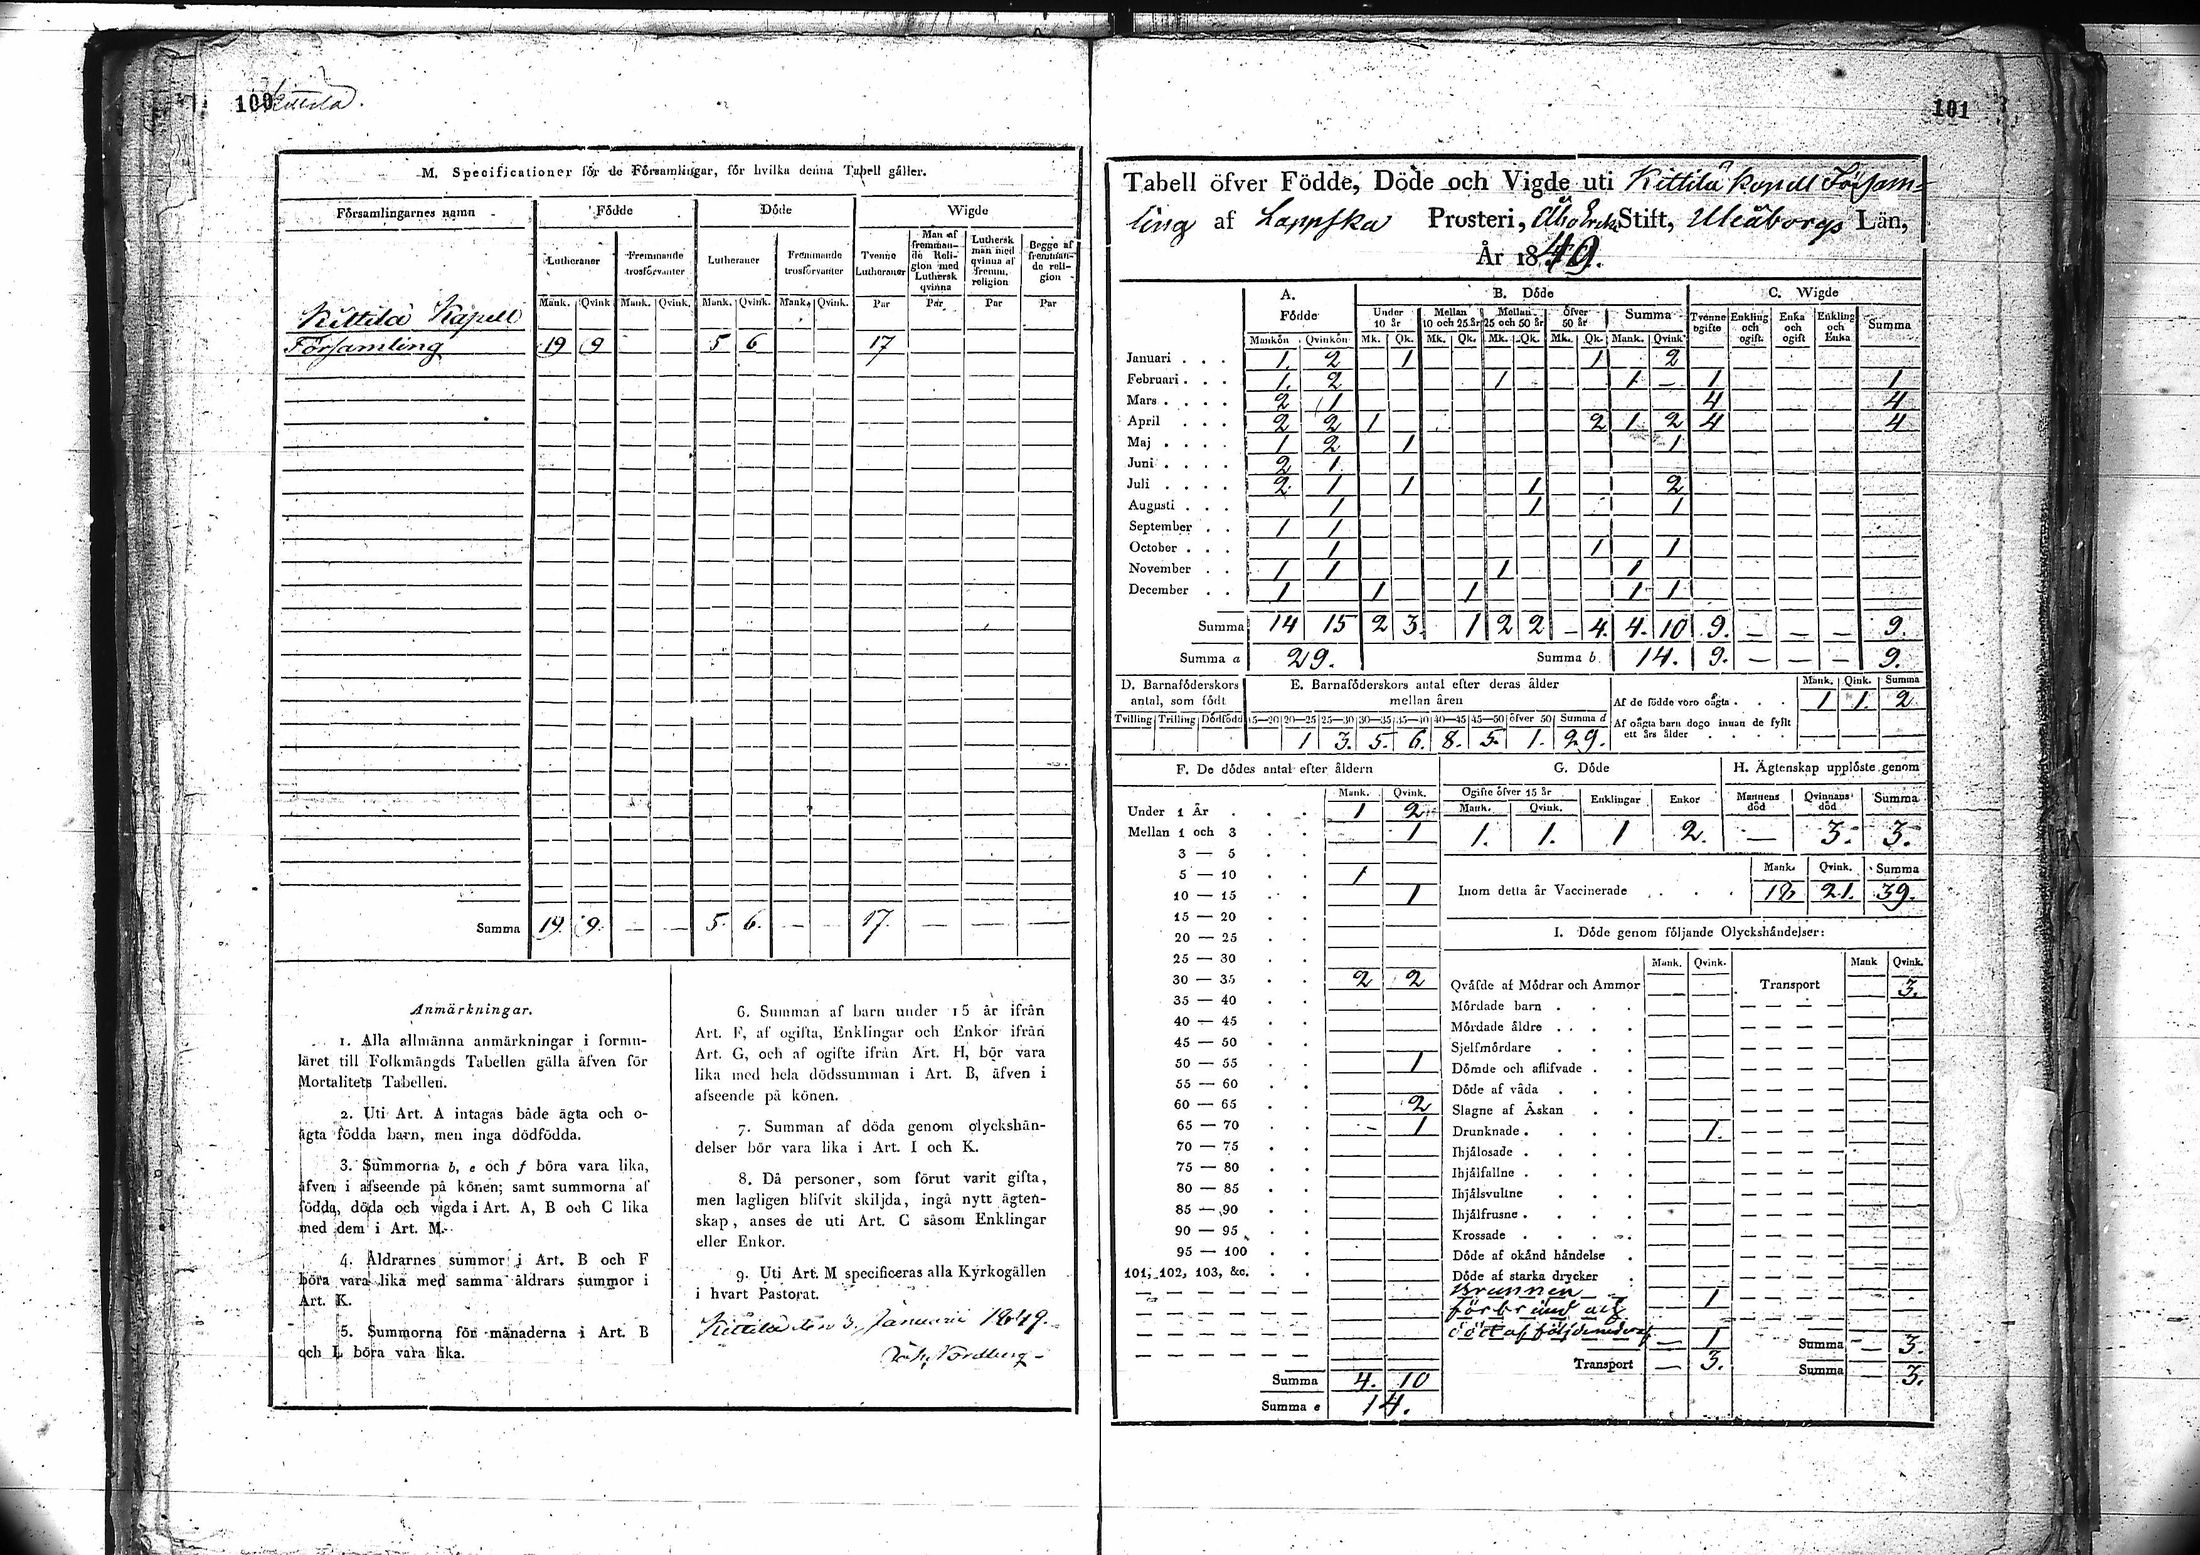 100 Kittilä.
M. Specificationer för de Församlingar, för hvilka denna Tabell gäller.
Församlingarnes namn Födde Döde Wigde
Lutheraner Fremmande trosförvanter Lutheraner Fremmande trosförvanter Tvenne Lutheraner Man af fremmande Religion med Luthersk qvinna Luthersk man med qvinna af fremm. religion Begge af fremmande religion
Mank. Qvink. Mank. Qvink. Mank. Qvink. Mank. Qvink. Par Par Par Par
Kittilä Kapell
Församling 19 9 5 6 17
Summa 19. 9. — — 5. 6. — — 17. — — —
Anmärkningar.
1. Alla allmänna anmärkningar i formu-
läret till Folkmängds Tabellen gälla äfven för
Mortalitets Tabellen.
2. Uti Art. A intagas både ägta och o-
ägta födda barn, men inga dödfödda.
3. Summorna b, e och f böra vara lika,
äfven i afseende på könen; samt summorna af
födda, döda och vigda i Art. A, B och C lika
med dem i Art. M.
4. Åldrarnes summor i Art. B och F
böra vara lika med samma åldrars summor i
Art. K.
5. Summorna för månaderna i Art. B
och L böra vara lika.
6. Summan af barn under 15 år ifrån
Art. F, af ogifta, Enklingar och Enkor ifrån
Art. G, och af ogifte ifrån Art. H, bör vara
lika med hela dödssumman i Art. B, äfven i
afseende på könen.
7. Summan af döda genom olyckshän-
delser bör vara lika i Art. I och K.
8. Då personer, som förut varit gifta,
men lagligen blifvit skiljda, ingå nytt ägten-
skap, anses de uti Art. C såsom Enklingar
eller Enkor.
9. Uti Art. M specificeras alla Kyrkogällen
i hvart Pastorat.
Kittilä den 3. Januarii 1849.
Nordberg
101
Tabell öfver Födde, Döde och Vigde uti Kittilä Kapell Församling
af Lappska Prosteri, Åbo Stift, Uleåborgs Län,
År 1849.
A. Födde B. Döde C. Wigde
Under 10 år Mellan 10 och 25 år Mellan 25 och 50 år Öfver 50 år Summa Tvenne ogifte Enkling och ogift. Enka och ogift Enkling och Enka Summa
Mankön Qvinkön Mk. Qk. Mk. Qk. Mk. Qk. Mk. Qk. Mank. Qvink.
Januari 1 2 1 1 2
Februari 1 2 1 1 — 1 1
Mars 2 1 4 4
April 2 2 1 2 1 2 4 4
Maj 1 2 1 1
Juni 2 1
Juli 2 1 1 1 2
Augusti 1 1 1
September 1 1
October 1 1 1
November 1 1 1 1
December 1 1 1 1 1
Summa 14 15 2 3. 1 2 2 — 4. 4. 10 9. — — — 9.
Summa a 29. Summa b 14. 9. — — — 9.
D. Barnaföderskors antal, som födt
Tvilling Trilling Dödfödd
E. Barnaföderskors antal efter deras ålder mellan åren
15—20 20—25 25—30 30—35 35—40 40—45 45—50 öfver 50 Summa d
1 3. 5. 6. 8. 5. 1. 29.
Mank. Qink. Summa
Af de födde voro oägta 1 1. 2
Af oägta barn dogo innan de fyllt ett års ålder
F. De dödes antal efter åldern
Mank. Qvink.
Under 1 År 1 2
Mellan 1 och 3 1
3 — 5
5 — 10 1
10 — 15 1
15 — 20
20 — 25
25 — 30
30 — 35 2 2
35 — 40
40 — 45
45 — 50
50 — 55 1
55 — 60
60 — 65 2
65 — 70 — 1
70 — 75
75 — 80
80 — 85
85 — 90
90 — 95
95 — 100
101, 102, 103, &c.
Summa 4. 10
Summa e 14.
G. Döde
Ogifte öfver 15 år Enklingar Enkor
Mank. Qvink.
1. 1. 1 2.
H. Ägtenskap upplöste genom
Mannens död Qvinnans död Summa
— 3. 3.
Mank. Qvink. Summa
Inom detta år Vaccinerade 18 21. 39.
I. Döde genom följande Olyckshändelser:
Mank. Qvink. Mank Qvink.
Qväfde af Mödrar och Ammor Transport 3.
Mördade barn
Mördade äldre
Sjelfmördare
Dömde och aflifvade
Döde af våda
Slagne af Åskan
Drunknade 1.
Ihjälosade
Ihjälfallne
Ihjälsvultne
Ihjälfrusne
Krossade
Döde af okänd händelse
Döde af starka drycker
Brunnen 1
förbränd och
död af följderna deraf — 1 Summa — 3.
Transport — 3. Summa 3.